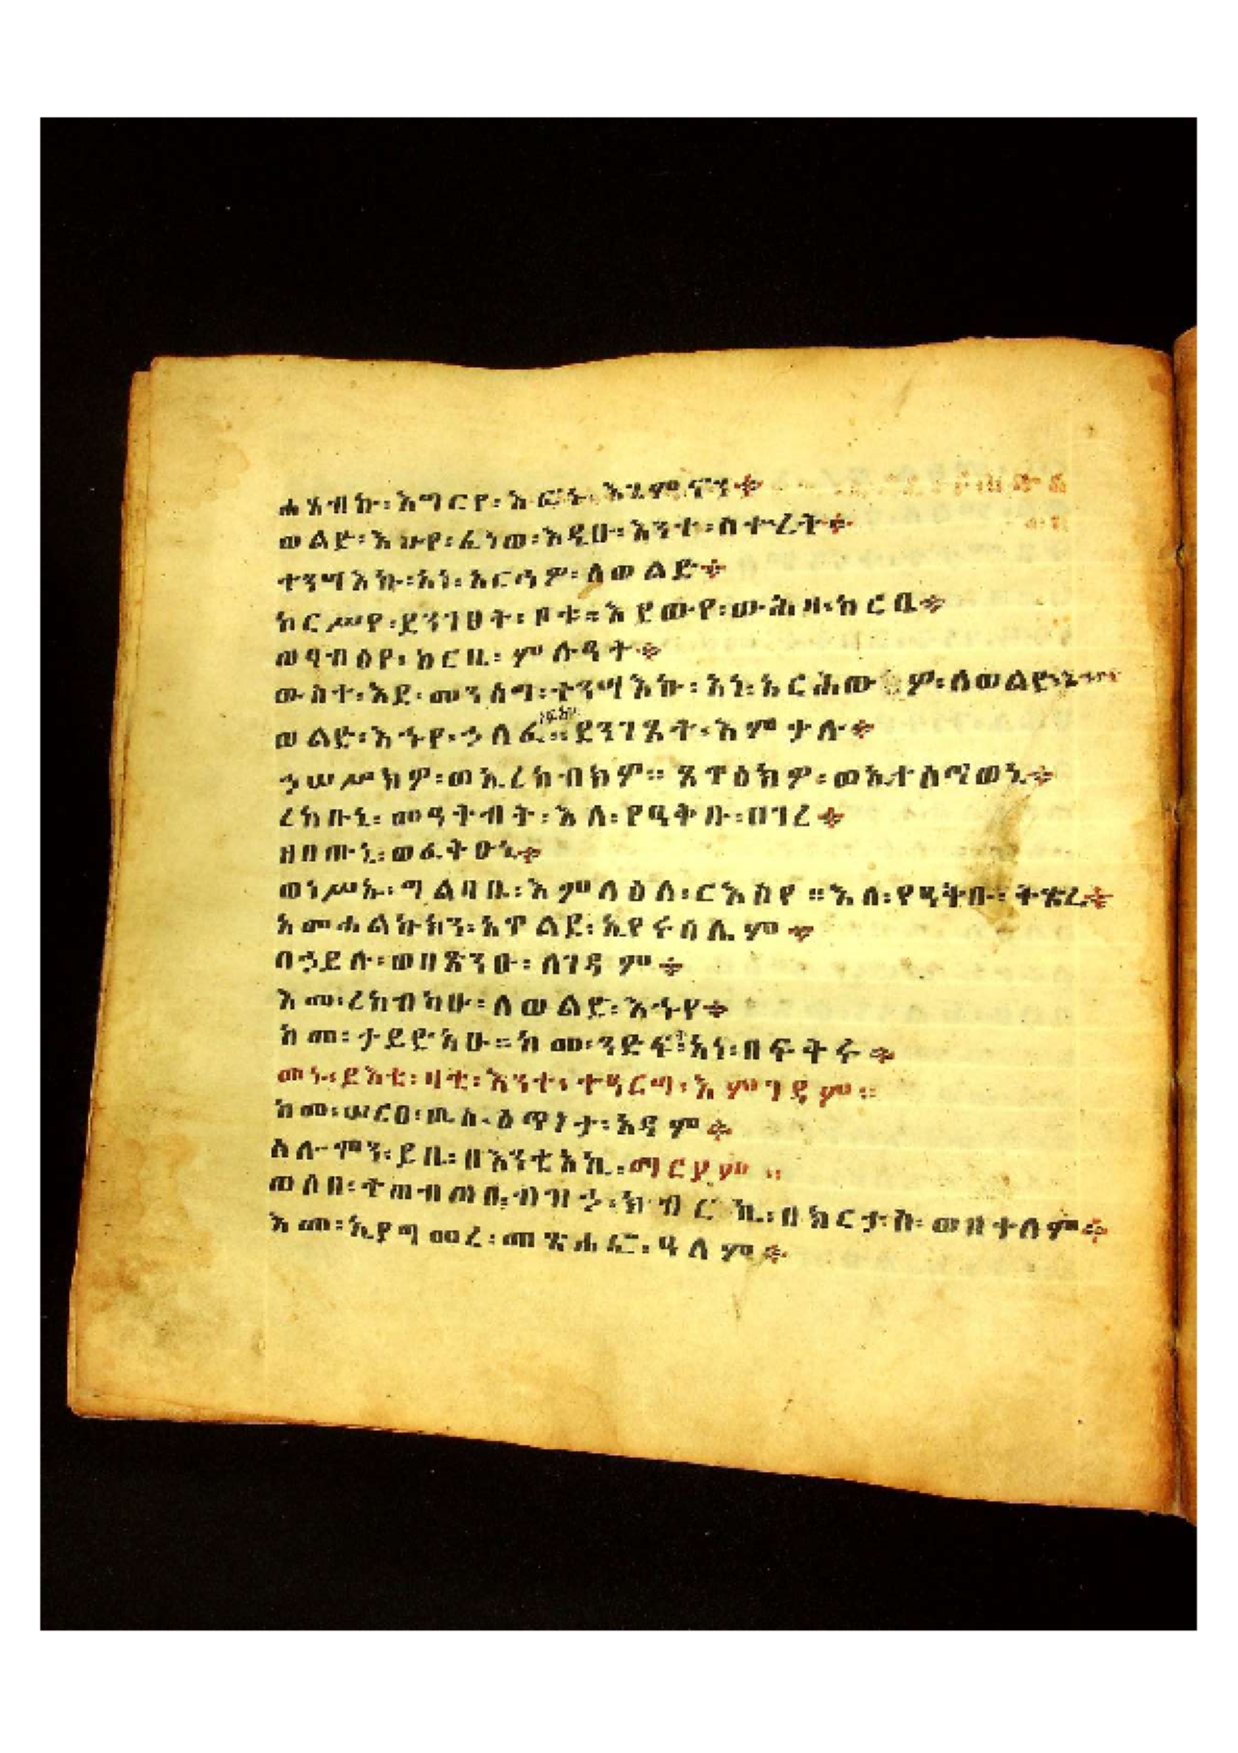 ሐፀብኩ፡እግርየ፡እፎኑ፡እጌምኖን፨
ወልድ፡እኁየ፡ፈነወ፡እዲሁ፡እንተ፡ስቍረት፨
ተንሣእኩ፡አነ፡አርኁዎ፡ለወልድ፨
ከርሥየ፡ደንገፀት፡ቦቱ። እደውየ፡ውሕዛ፡ከርቤ፨
ወፃብዕየ፡ከርቤ፡ምሉዓት፨
ውስተ፡እደ፡መንሰግ፡ተንሣእኩ፡አነ፡አርሕው ም፡ለወልድ፡
ወልድ፡እኁየ፡ኃለፈ። ደንገጸት፡እምቃሉ፨
ኃሠሥክዎ፡ወኢረከብክዎ። ጸዋዕክዎ፡ወኢተሰጥወኒ፨
ረከቡኒ፡መዓትብት፡እለ፡የዓቅቡ፡ሀገረ፨
ዘበጡኒ፡ወፈትሁኒ፨
ወነሥኡ፡ግልባቤ፡እምለዕለ፡ርእስየ። እለ፡የዓቅቡ፡ጥቅረ፨
አመሐልኩክን፡አዋልደ፡ኢየሩሳሌም፨
በኃይሉ፡ወበጽንዑ፡ለገዳም፨
እመ፡ረከብካሁ፡ለወልድ፡እኁየ፨
ከመ፡ታይድአሁ። ከመ፡ንድፍት፡አነ፡በፍትሩ፨
መኑ፡ይእቲ፡ዛቲ፡እንተ፡ተዓርግ፡እምገዳም።
ከመ፡ሠርፀ፡ዕፅነታ፡አዳም፨
ሰሎሞን፡ይቤ፡በእንቲአኪ፡ማርያም።
ወለበ፡ተጠብጠበ፡ብዝኃ፡ክብርኪ፡በክርታስ፡ወበተለም፨
እመ፡ኢያግመረ፡መጽሐፈ፡ዓለም፨